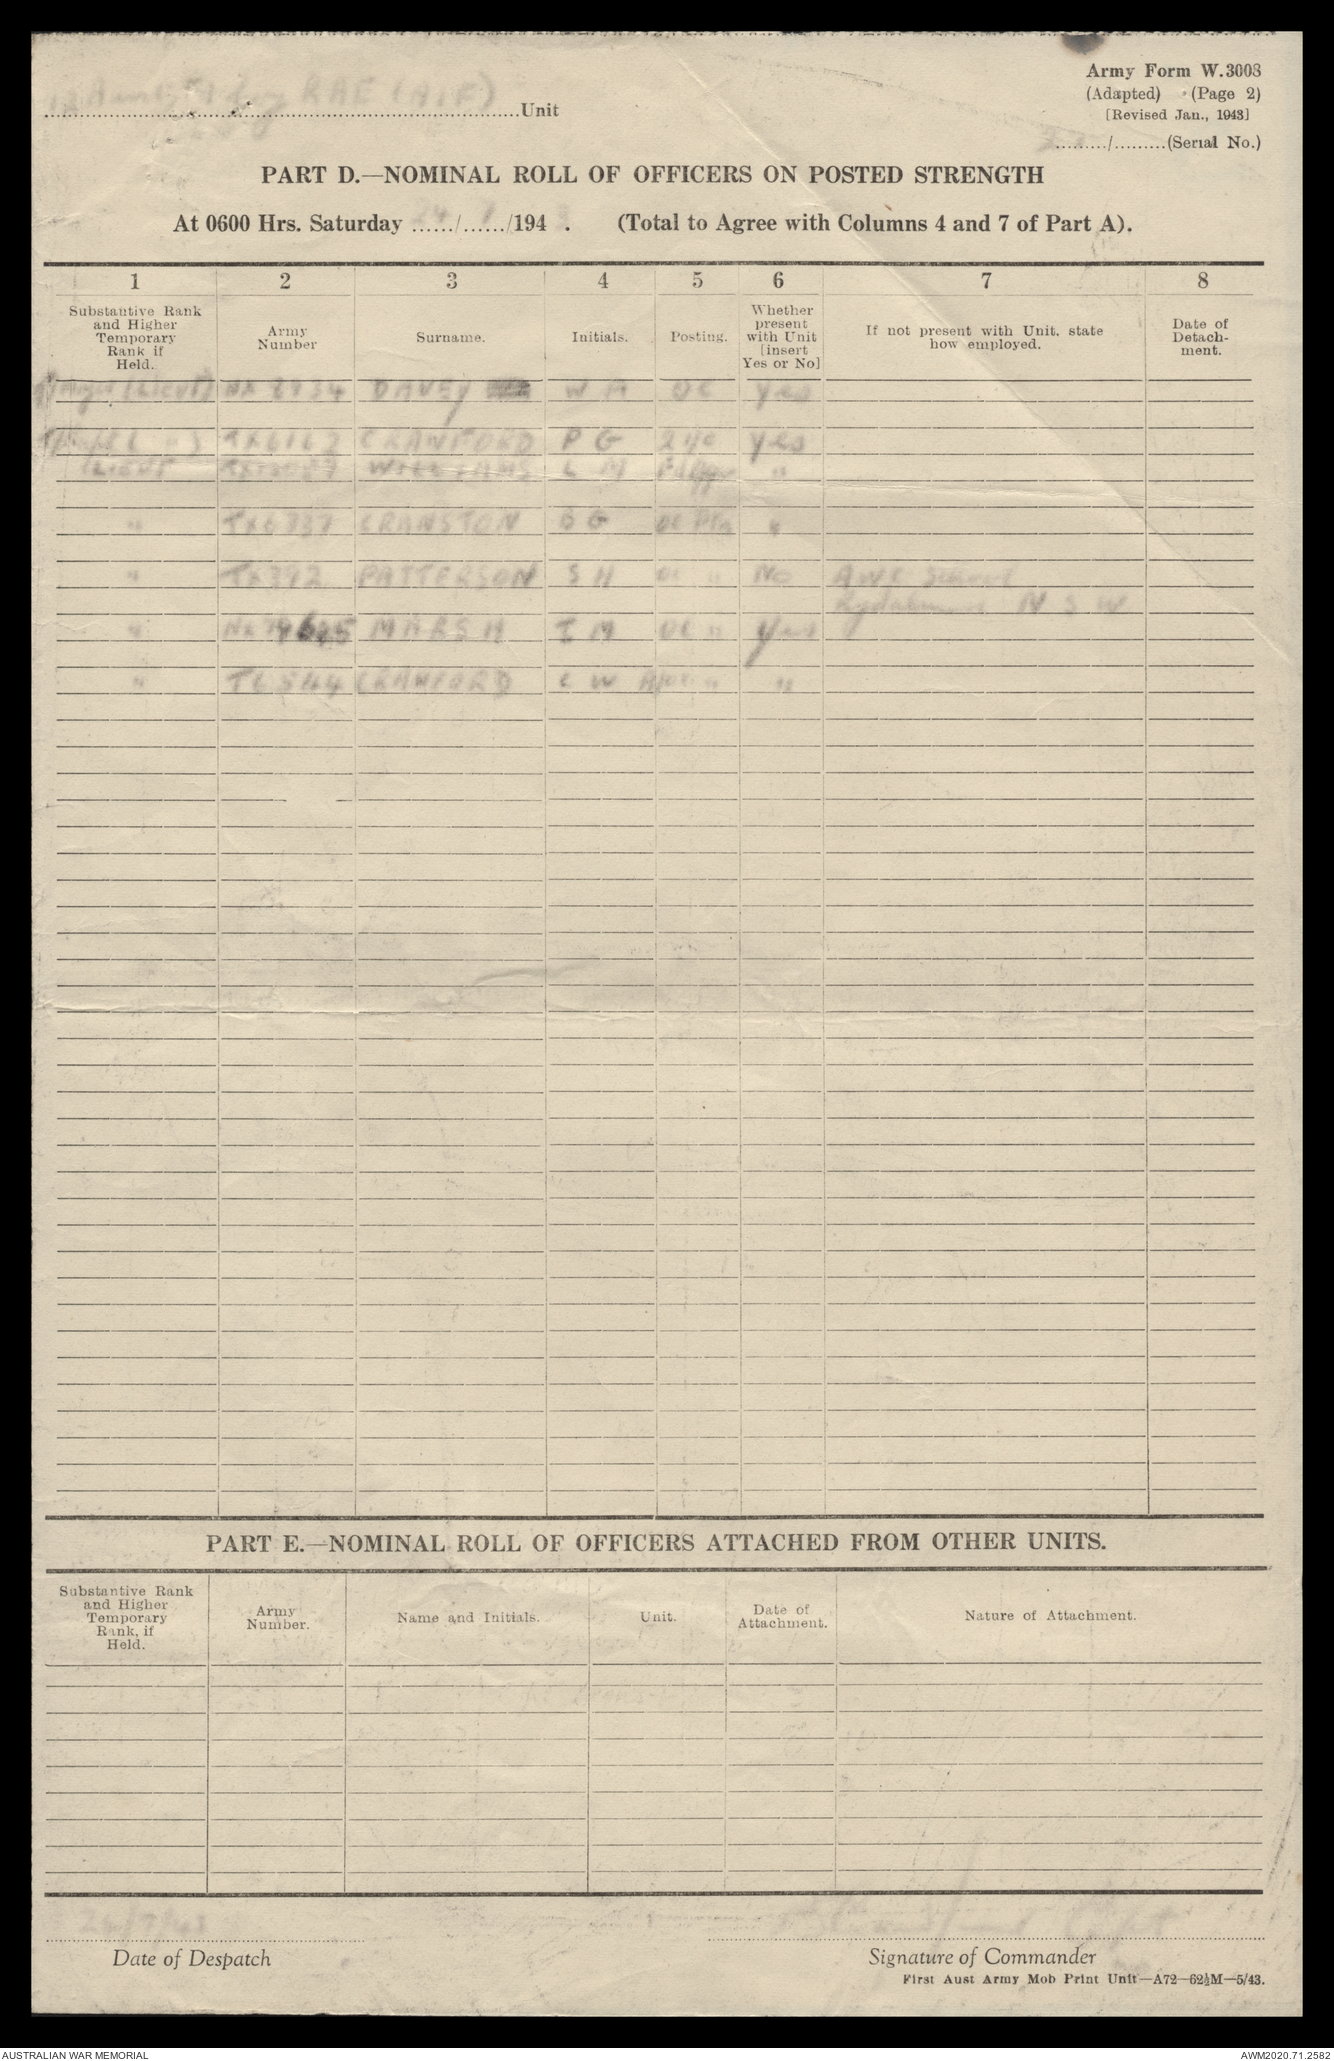 Army Form W.3008
(Adapted) (Page 2)
[Revised Jan., 1943]
RAE (AIF) Unit
........./.........(Serial No.)
PART D.—NOMINAL ROLL OF OFFICERS ON POSTED STRENGTH
At 0600 Hrs. Saturday 24/7/194 . (Total to Agree with Columns 4 and 7 of Part A).
1 2 3 4 5 6 7 8
Substantive Rank and Higher Temporary Rank if Held. Army Number Surname. Initials. Posting. Whether present with Unit [insert Yes or No] If not present with Unit, state how employed. Date of Detachment.
(Lieut) DAVEY W A OC Yes
CRAWFORD P G 2 i/c Yes
LIEUT WILLIAMS L M "
" TX6737 CRANSTON B G OC Pln "
" TX392 PATTERSON S H OC " No AWE School
N S W
" MARSH I M OC " Yes
" T6544 CRAWFORD C W A/OC " "
PART E.—NOMINAL ROLL OF OFFICERS ATTACHED FROM OTHER UNITS.
Substantive Rank and Higher Temporary Rank, if Held. Army Number. Name and Initials. Unit. Date of Attachment. Nature of Attachment.
24/7/43
Date of Despatch
Signature of Commander
First Aust Army Mob Print Unit—A72—62½M—5/43.
AUSTRALIAN WAR MEMORIAL
AWM2020.71.2582